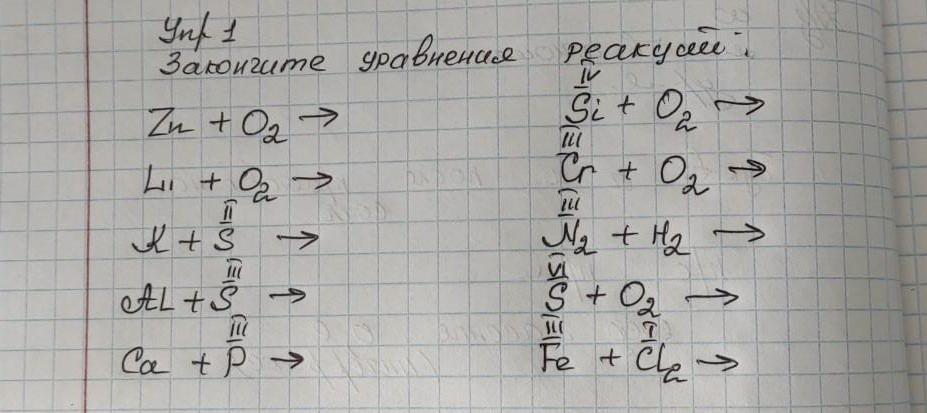 Упр 1
Закончите уравнения реакций:
Zn + O2 →
Li + O2 →
II
K + S →
III
AL + S →
III
Ca + P →
IV
Si + O2 →
III
Cr + O2 →
III
N2 + H2 →
VI
S + O2 →
III I
Fe + Cl2 →